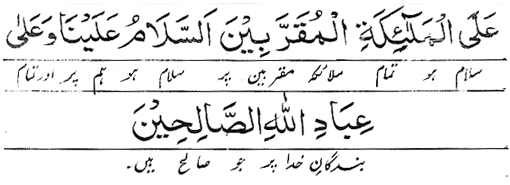 عَلَى الْمَلٰٓئِكَةِ الْمُقَرَّبِيْنَ اَلسَّلَامُ عَلَيْنَا وَعَلٰى
سلام ہو تمام ملائکہ مقربین پر سلام ہو ہم پر اور تمام
عِبَادِ اللّٰهِ الصَّالِحِيْنَ
بندگانِ خدا پر جو صالح ہیں۔